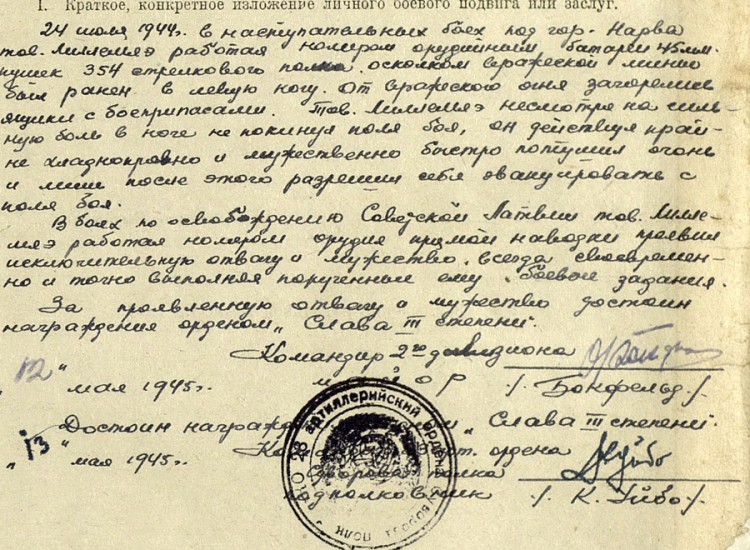 I. Краткое, конкретное изложение личного боевого подвига или заслуг.
24 июля 1944г. в наступательных боях под гор. Нарва
тов. Лиллемяэ работая номером орудийным батареи 45мм.
пушек 354 стрелкового полка. осколком вражеской мины
был ранен в левую ногу. От вражеского огня загорелись
ящики с боеприпасами. Тов. Лиллемяэ несмотря на силь-
ную боль в ноге не покинул поля боя, он действуя край-
не хладнокровно и мужественно быстро потушил огонь
и лиш после этого разрешил себя эвакуировать с
поля боя.
В боях по освобождению Советской Латвии тов. Лилле-
мяэ работая номером орудия прямой наводки проявил
исключительную отвагу и мужество. всегда своевремен-
но и точно выполняя порученные ему боевые задания.
За проявленную отвагу и мужество достоин
награждения орденом „Слава III степени".
Командир 2го дивизиона
"12" мая 1945г. майор /. Бонфельд./.
Достоин награжд „Слава III степени".
"13" мая 1945г. орда ордена
полка
подполковник /. К. Уйбо./.
28 артиллерийский ордена